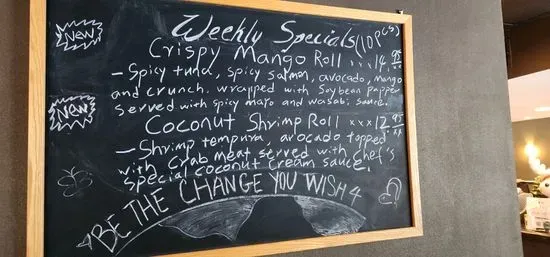 Weekly Specials (10pcs)
New
Crispy Mango Roll ... 14 95
- Spicy tuna, spicy salmon, avocado, mango
and crunch. wrapped with Soybean papper
served with spicy mayo and wasabi sauce.
New
Coconut Shrimp Roll xxx 12 95
- Shrimp tempura, avocado topped
with crab meat served with chef's
special coconut cream sauce.
BE THE CHANGE YOU WISH 4